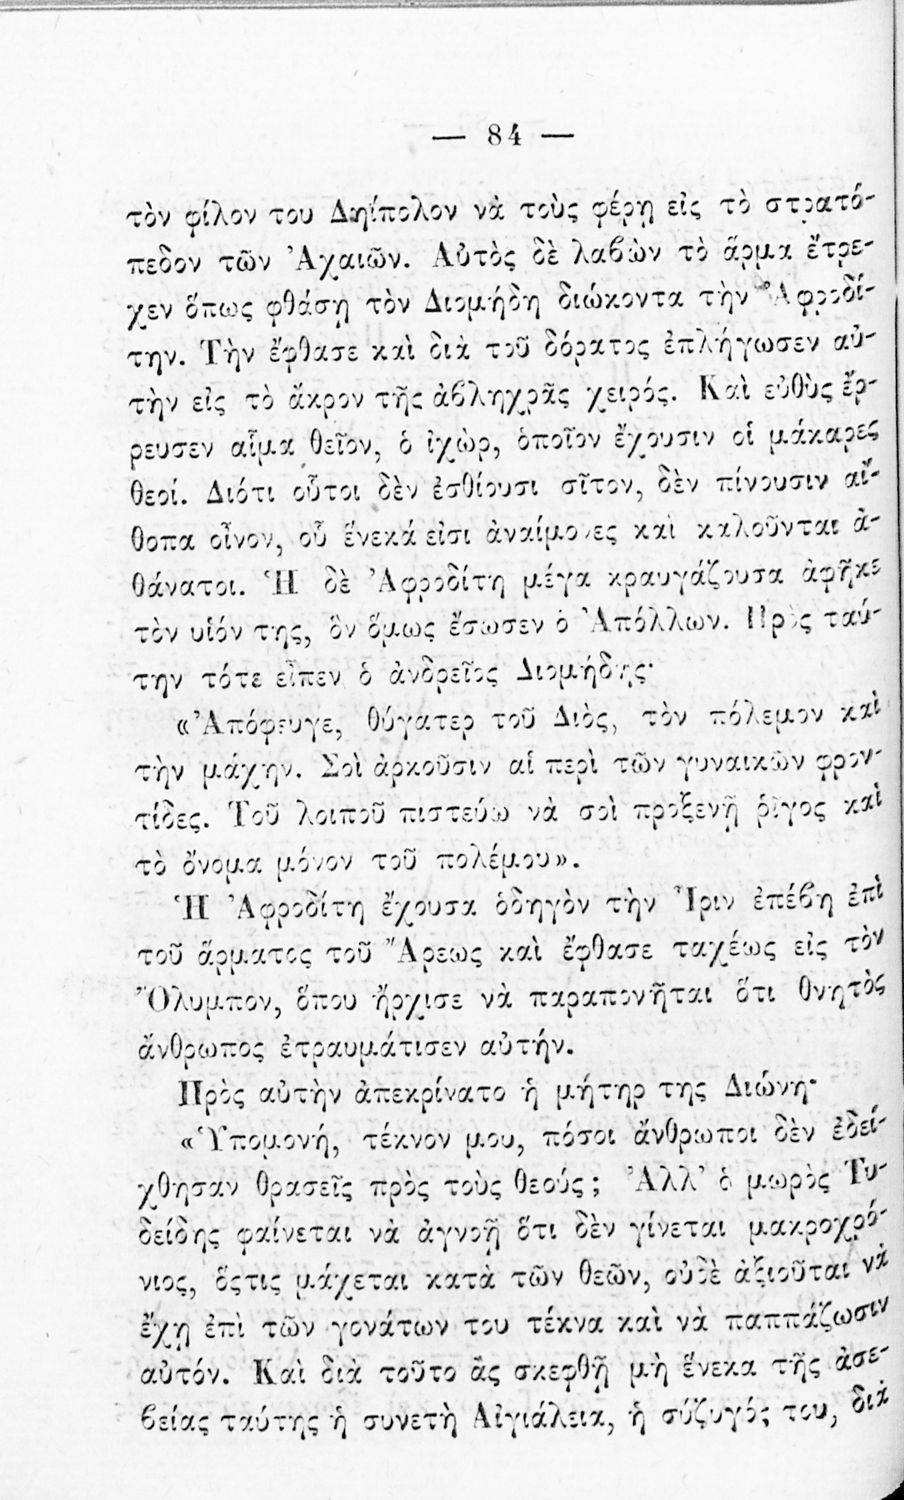 — 84 —
τὸν φίλον του Δηίπολον νὰ τοὺς φέρῃ εἰς τὸ στρατό-
πεδον τῶν Ἀχαιῶν. Αὐτὸς δὲ λαβὼν τὸ ἅρμα ἔτρε-
χεν ὅπως φθάσῃ τὸν Διομήδη διώκοντα τὴν Ἀφροδί-
την. Τὴν ἔφθασε καὶ διὰ τοῦ δόρατος ἐπλήγωσεν αὐ-
τὴν εἰς τὸ ἄκρον τῆς ἀβληχρᾶς χειρός. Καὶ εὐθὺς ἔρ-
ρευσεν αἷμα θεῖον, ὁ ἰχὼρ, ὁποῖον ἔχουσιν οἱ μάκαρες
θεοί. Διότι οὗτοι δὲν ἐσθίουσι σῖτον, δὲν πίνουσιν αἴ-
θοπα οἶνον, οὗ ἕνεκά εἰσι ἀναίμονες καὶ καλοῦνται ἀ-
θάνατοι. Ἡ δὲ Ἀφροδίτη μέγα κραυγάζουσα ἀφῆκε
τὸν υἱόν της, ὃν ὅμως ἔσωσεν ὁ Ἀπόλλων. Πρὸς ταύ-
την τότε εἶπεν ὁ ἀνδρεῖος Διομήδης·
«Ἀπόφευγε, θύγατερ τοῦ Διὸς, τὸν πόλεμον καὶ
τὴν μάχην. Σοὶ ἀρκοῦσιν αἱ περὶ τῶν γυναικῶν φρον-
τίδες. Τοῦ λοιποῦ πιστεύω νὰ σοὶ προξενῇ ῥῖγος καὶ
τὸ ὄνομα μόνον τοῦ πολέμου».
Ἡ Ἀφροδίτη ἔχουσα ὁδηγὸν τὴν Ἶριν ἐπέβη ἐπὶ
τοῦ ἅρματος τοῦ Ἄρεως καὶ ἔφθασε ταχέως εἰς τὸν
Ὄλυμπον, ὅπου ἤρχισε νὰ παραπονῆται ὅτι θνητὸς
ἄνθρωπος ἐτραυμάτισεν αὐτήν.
Πρὸς αὐτὴν ἀπεκρίνατο ἡ μήτηρ της Διώνη·
«Ὑπομονή, τέκνον μου, πόσοι ἄνθρωποι δὲν ἐδεί-
χθησαν θρασεῖς πρὸς τοὺς θεούς; Ἀλλ' ὁ μωρὸς Τυ-
δείδης φαίνεται νὰ ἀγνοῇ ὅτι δὲν γίνεται μακροχρό-
νιος, ὅςτις μάχεται κατὰ τῶν θεῶν, οὐδὲ ἀξιοῦται νὰ
ἔχῃ ἐπὶ τῶν γονάτων του τέκνα καὶ νὰ παππάζωσιν
αὐτόν. Καὶ διὰ τοῦτο ἂς σκεφθῇ μὴ ἕνεκα τῆς ἀσε-
βείας ταύτης ἡ συνετὴ Αἰγιάλεια, ἡ σύζυγός του, διὰ